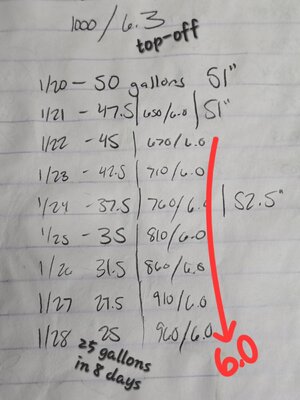 1000/6.3
top-off
1/20 - 50 gallons 51"
1/21 - 47.5 | 650/6.0 | 51"
1/22 - 45 | 670/6.0
1/23 - 42.5 | 710/6.0
1/24 - 37.5 | 760/6.0 | 52.5"
1/25 - 35 | 810/6.0
1/26 - 31.5 | 860/6.0
1/27 27.5 | 910/6.0
1/28 25 | 960/6.0
6.0
25 gallons
in 8 days